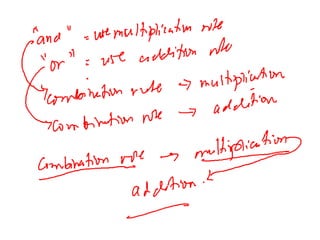 "and" = use multiplication rule
"or" = use addition rule
combination rule → multiplication
combination rule → addition
combination rule → multiplication
addition.